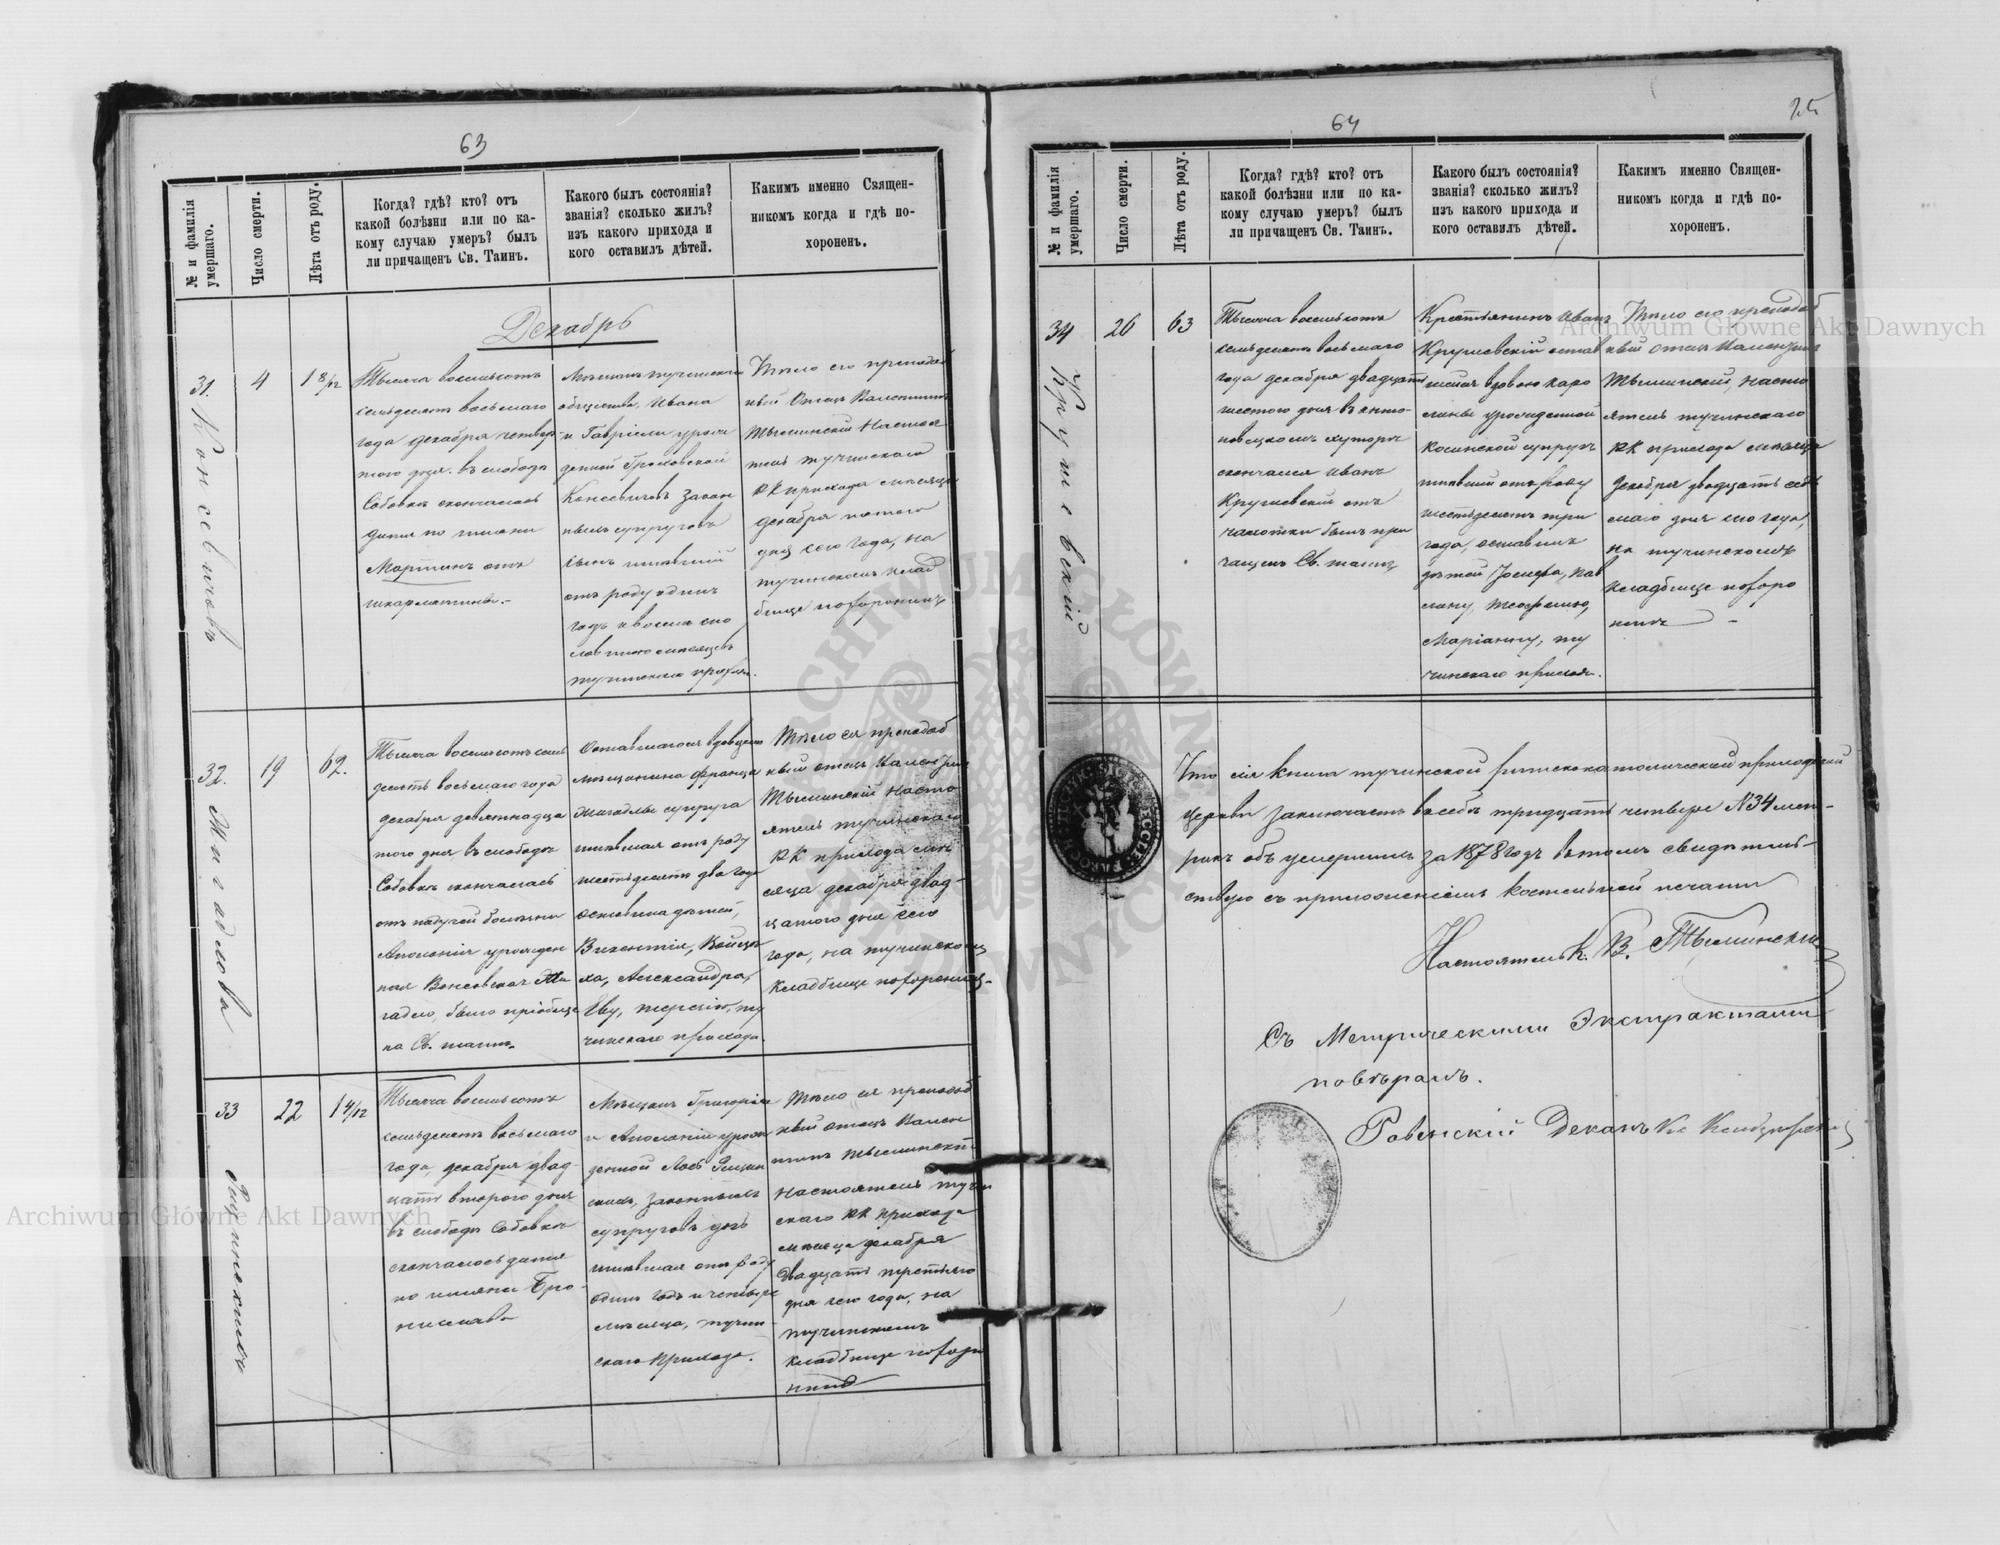 63
№ и фамилія умершаго.
Число смерти.
Лѣта отъ роду.
Когда? гдѣ? кто? отъ
какой болѣзни или по ка-
кому случаю умеръ? былъ
ли причащенъ Св. Таинъ.
Какого былъ состоянія?
званія? сколько жилъ?
изъ какого прихода и
кого оставилъ дѣтей.
Каким именно Священ-
никомъ когда и гдѣ по-
хороненъ.
Декабрь
31.
4
1 8/12
Тысяча восемьсотъ
семьдесятъ восьмаго
года декабря четвер-
того дня въ слободѣ
Собовкѣ скончалось
дитя по имени
Мартинъ отъ
шкарлятины.-
общества, Ивана
и Габріели урож
денной
закон
ныхъ супруговъ
сынъ жившій
отъ роду одинъ
годъ и восемь
мѣсяцевъ
Тѣло его преподоб
ный Отецъ Валентинъ
Тыминскій Настоя
тель тучинскаго
РК прихода мѣсяца
декабря пятого
дня сего года, на
тучинскомъ клад
бище похоронилъ
32.
19
62.
Мигадлова
Тысяча восемьсотъ семь
десятъ восьмаго года
декабря девятнадца
того дня въ слободѣ
Собовкѣ скончалась
отъ падучей болѣзни
Аполонія урожден
ная
на Св. таинъ.
мѣщанина Франца
Жигадлы супруга
жившая отъ роду
шестьдесятъ два года
оставила дѣтей,
Викентія, Войцѣ
ха, Александра,
Еву, ту
чинскаго прихода.
Тѣло ея преподоб
ный отецъ Валентинъ
Тыминскій насто
ятель тучинскаго
РК прихода мѣ
сяца декабря двад-
цатого дня сего
года, на тучинскомъ
кладбище похоронилъ.-
33
22
1 4/12
Тысяча восемьсотъ
семьдесятъ восьмаго
года, декабря двад-
цать второго дня
въ слободѣ Собовкѣ
скончалось дитя
по имени Бро-
нислава
Мѣщанъ Григорія
и Аполоніи урож
денной
законныхъ
супруговъ дочь
жившая отъ роду
одинъ годъ и четыре
мѣсяца, тучин-
скаго прихода.
Тѣло ея преподоб
ный отецъ Вален
тинъ Тыминскій
настоятель тучин
скаго РК прихода
мѣсяца декабря
двадцать третьяго
дня сего года, на
тучинскомъ
кладбище похоро
нилъ
64
25
№ и фамилія умершаго.
Число смерти.
Лѣта отъ роду.
Когда? гдѣ? кто? отъ
какой болѣзни или по ка-
кому случаю умеръ? былъ
ли причащенъ Св. Таинъ.
Какого былъ состоянія?
званія? сколько жилъ?
изъ какого прихода и
кого оставилъ дѣтей.
Каким именно Священ-
никомъ когда и гдѣ по-
хороненъ.
34
26
63
Кругневскій
Тысяча восемьсотъ
семьдесятъ восьмаго
года декабря двадцать
шестого дня въ анто-
новецкомъ хуторѣ
скончался Иванъ
Кругневскій отъ
чахотки былъ при
чащенъ Св. таинъ
Крестьянинъ Иванъ
Кругневскій остав
шейся вдовою Каро
лины урожденной
Косинской супругъ
жившій отъ роду
шестьдесятъ три
года, оставилъ
дѣтей Іосифа, Пав
лину, Теофилю,
Маріанну, ту
чинскаго прихода.
Тѣло его преподоб
ный отецъ Валентинъ
Тыминскій, насто
ятель тучинскаго
РК прихода мѣсяца
декабря двадцать седь
маго дня сего года,
на тучинскомъ
кладбище похоро
нилъ -
Что сія книга тучинской римскокатолической приходской
церкви заключаетъ въ себѣ тридцать четыре №34 мет-
рикъ объ умершихъ за 1878 годъ въ томъ свидѣтель-
ствую съ приложеніемъ костельной печати
Настоятель К. В. Тыминскій
Съ Метрическими Экстрактами
повѣрялъ.
Ровенскій Деканъ Кс
Archiwum Główne Akt Dawnych
Archiwum Główne Akt Dawnych
ARCHIWUM GŁÓWNE AKT DAWNYCH